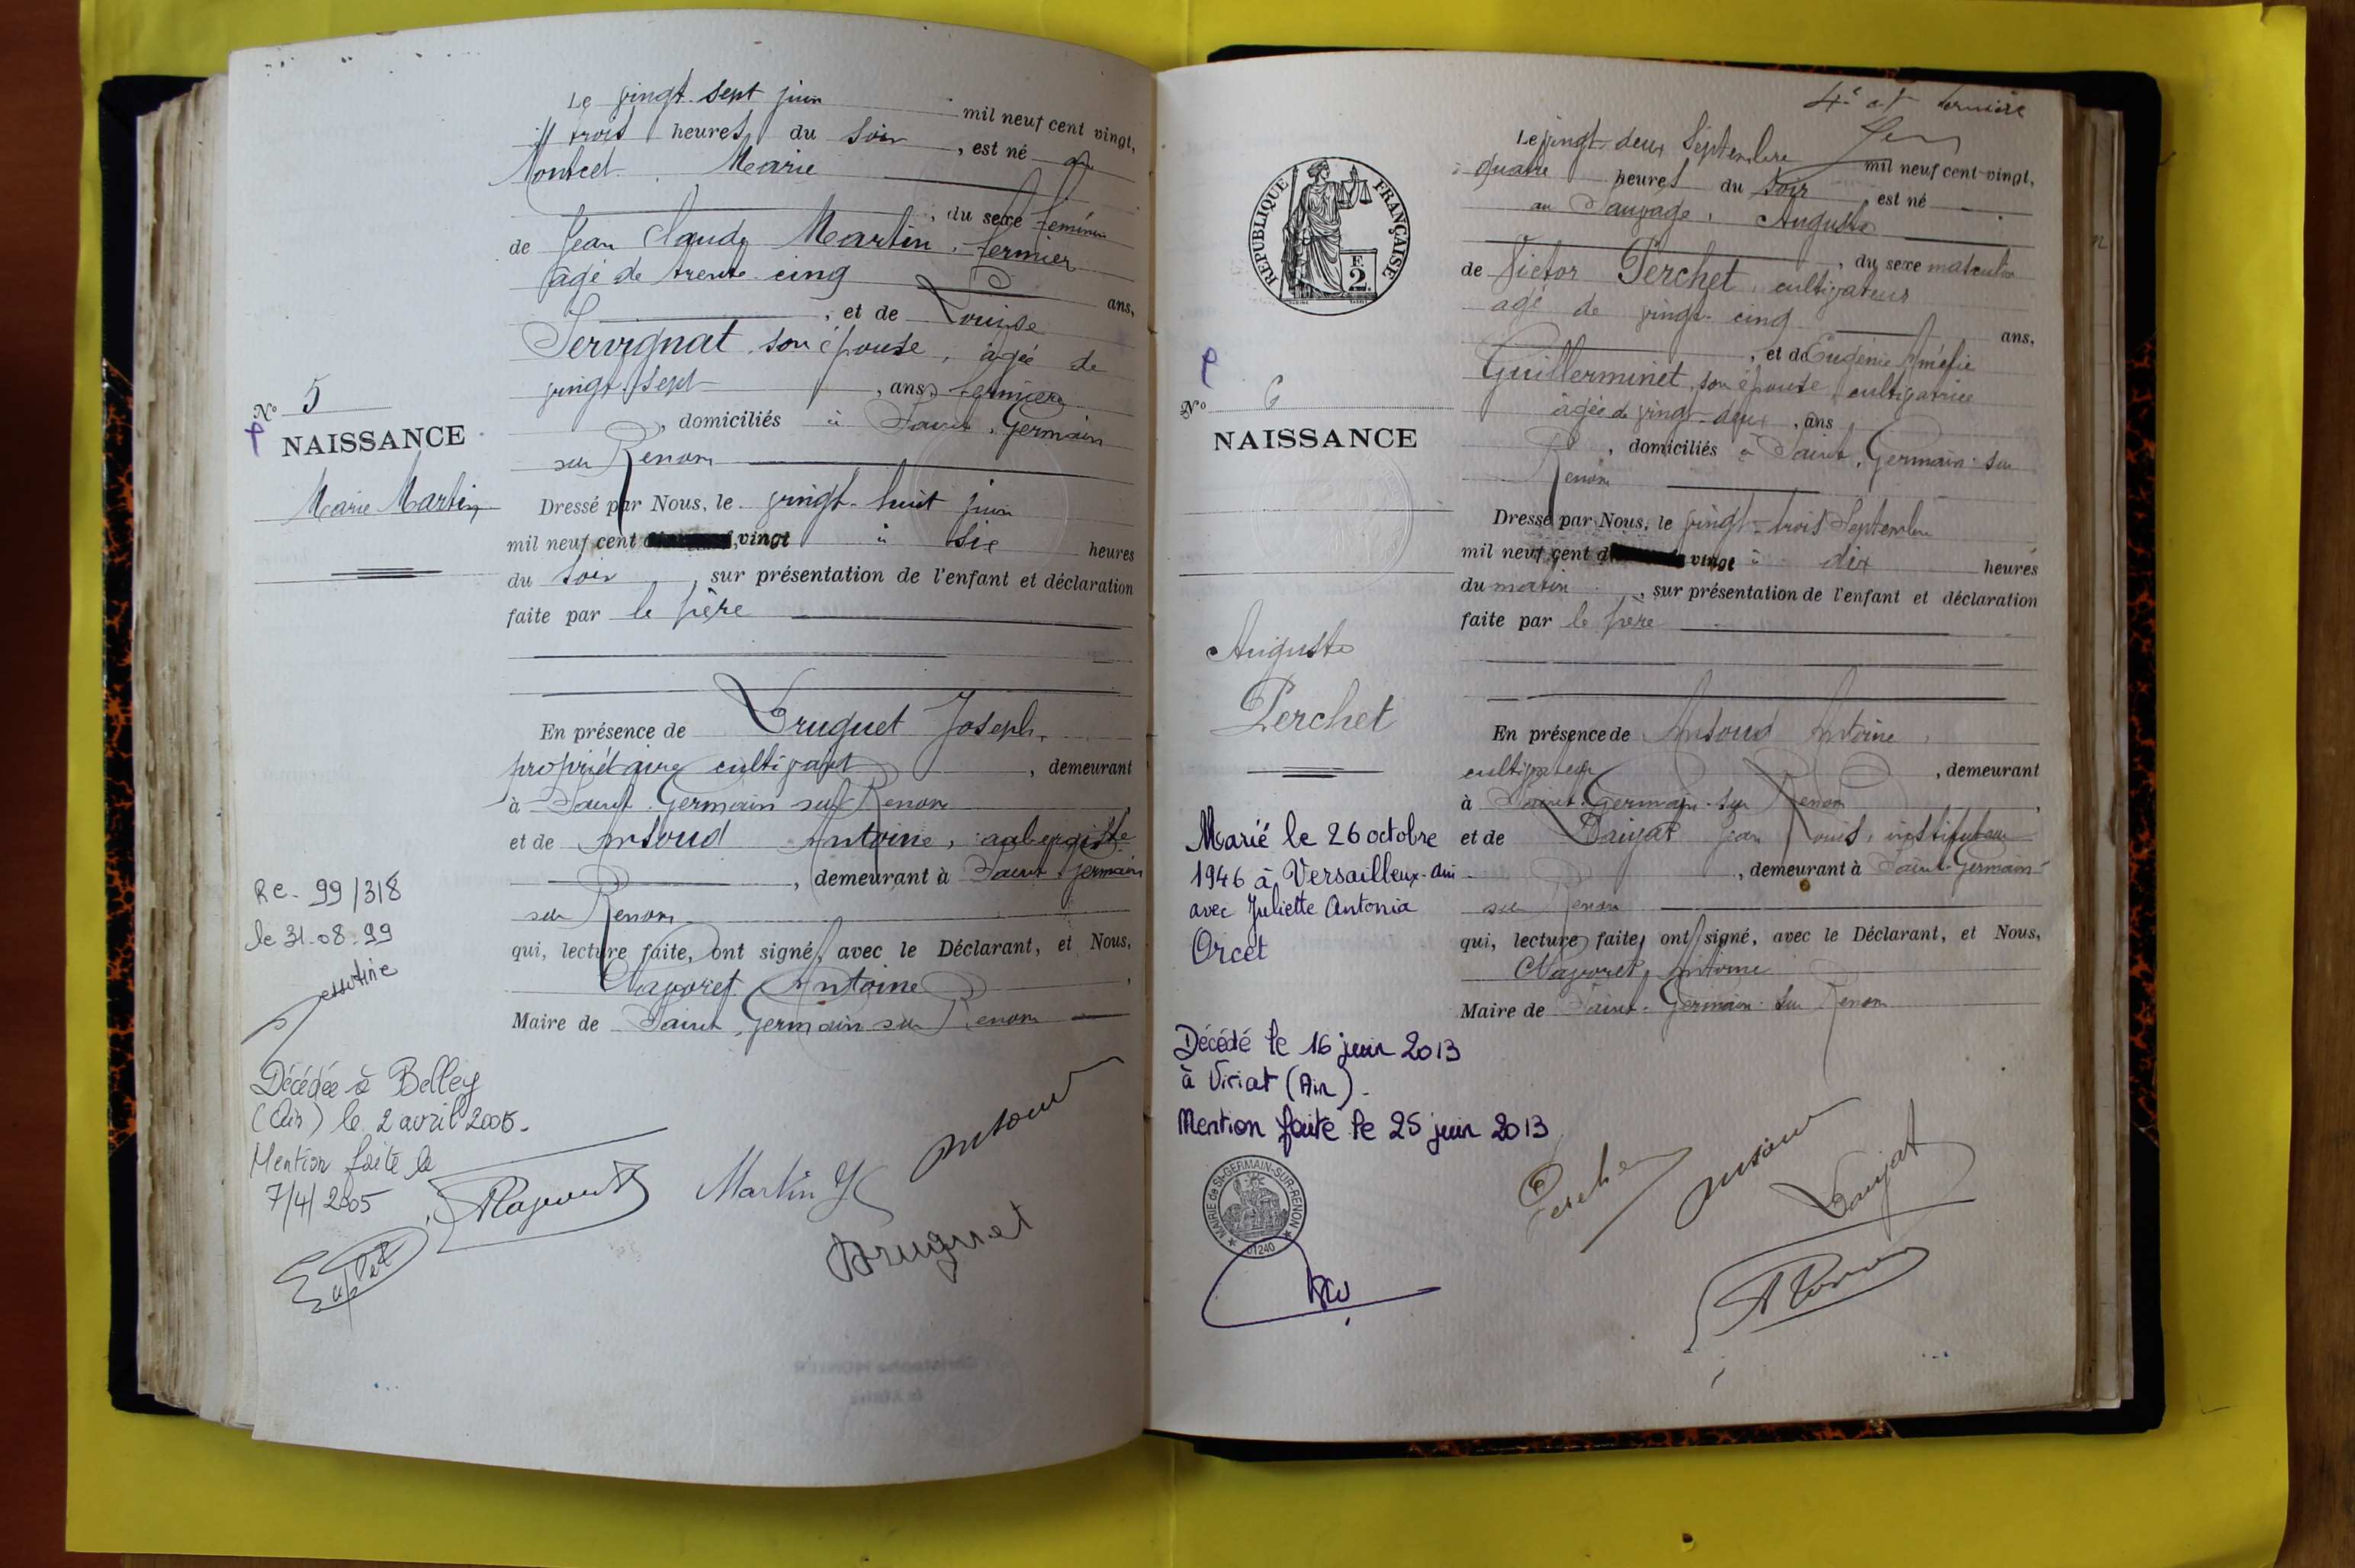 Le vingt-sept juin mil neuf cent vingt,
à trois heures du soir, est né au
Montcel. Marie
, du sexe féminin
de Jean Claude Martin, fermier
âgé de trente cinq ans,
, et de Louise
Servignat son épouse, âgée de
vingt-sept, ans, fermière
, domiciliés à Saint Germain
sur Renom
Nº 5
NAISSANCE
Marie Martin
Dressé par Nous, le vingt-huit juin
mil neuf cent vingt à six heures
du soir, sur présentation de l'enfant et déclaration
faite par le père
En présence de Druguet Joseph,
propriétaire cultivant, demeurant
à Saint Germain sur Renom,
et de Antoine, aubergiste
, demeurant à Saint Germain
sur Renom
qui, lecture faite, ont signé, avec le Déclarant, et Nous,
Antoine,
Maire de Saint Germain sur Renom
Re. 99/318
le 31.08.99
Décédée à Belley
(Ain) le 2 avril 2005.
Mention faite le
7/4/2005
Martin
Druguet
4e et dernière
Le vingt-deux Septembre mil neuf cent vingt,
quatre heures du soir, est né
au Sauvage, Auguste
, du sexe masculin
de Victor Perchet, cultivateur
âgé de vingt-cinq ans,
, et de Eugénie Amélie
Guillerminet, son épouse cultivatrice
âgée de vingt-deux, ans
, domiciliés à Saint Germain sur
Renom
REPUBLIQUE FRANÇAISE
F
2
Nº 6
NAISSANCE
Auguste
Perchet
Dressé par Nous, le vingt-trois Septembre
mil neuf cent vingt à dix heures
du matin, sur présentation de l'enfant et déclaration
faite par le père
En présence de Antoine,
cultivateur, demeurant
à Saint-Germain-sur Renom,
et de Jean Louis, instituteur
, demeurant à Saint-Germain
sur Renom
qui, lecture faite, ont signé, avec le Déclarant, et Nous,
Antoine
Maire de Saint-Germain-sur Renom
Marié le 26 octobre
1946 à Versailleux-Ain
avec Juliette Antonia
Orcet
Décédé le 16 juin 2013
à Viriat (Ain).
Mention faite le 25 juin 2013
MAIRIE de St-GERMAIN-SUR-RENON
01240
Perchet